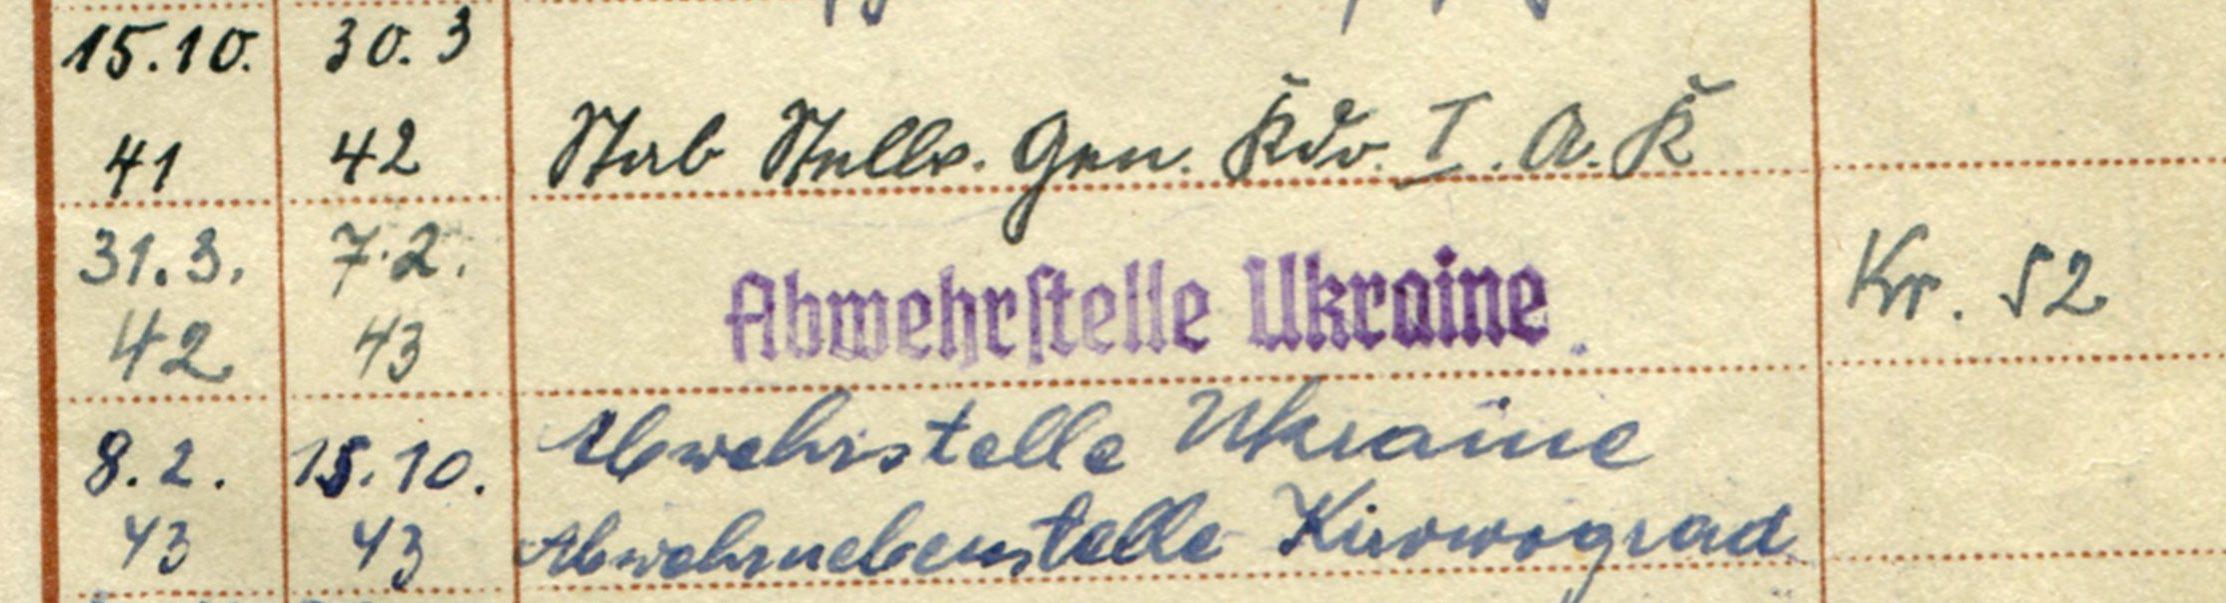 15.10. 30.3
41 42 Stab Stellv. Gen. Kdo. I. A. K
31.3. 7.2.
Abwehrstelle Ukraine Kr. 52
42 43
8.2. 15.10. Abwehrstelle Ukraine
43 43 Abwehrnebenstelle Kirowograd